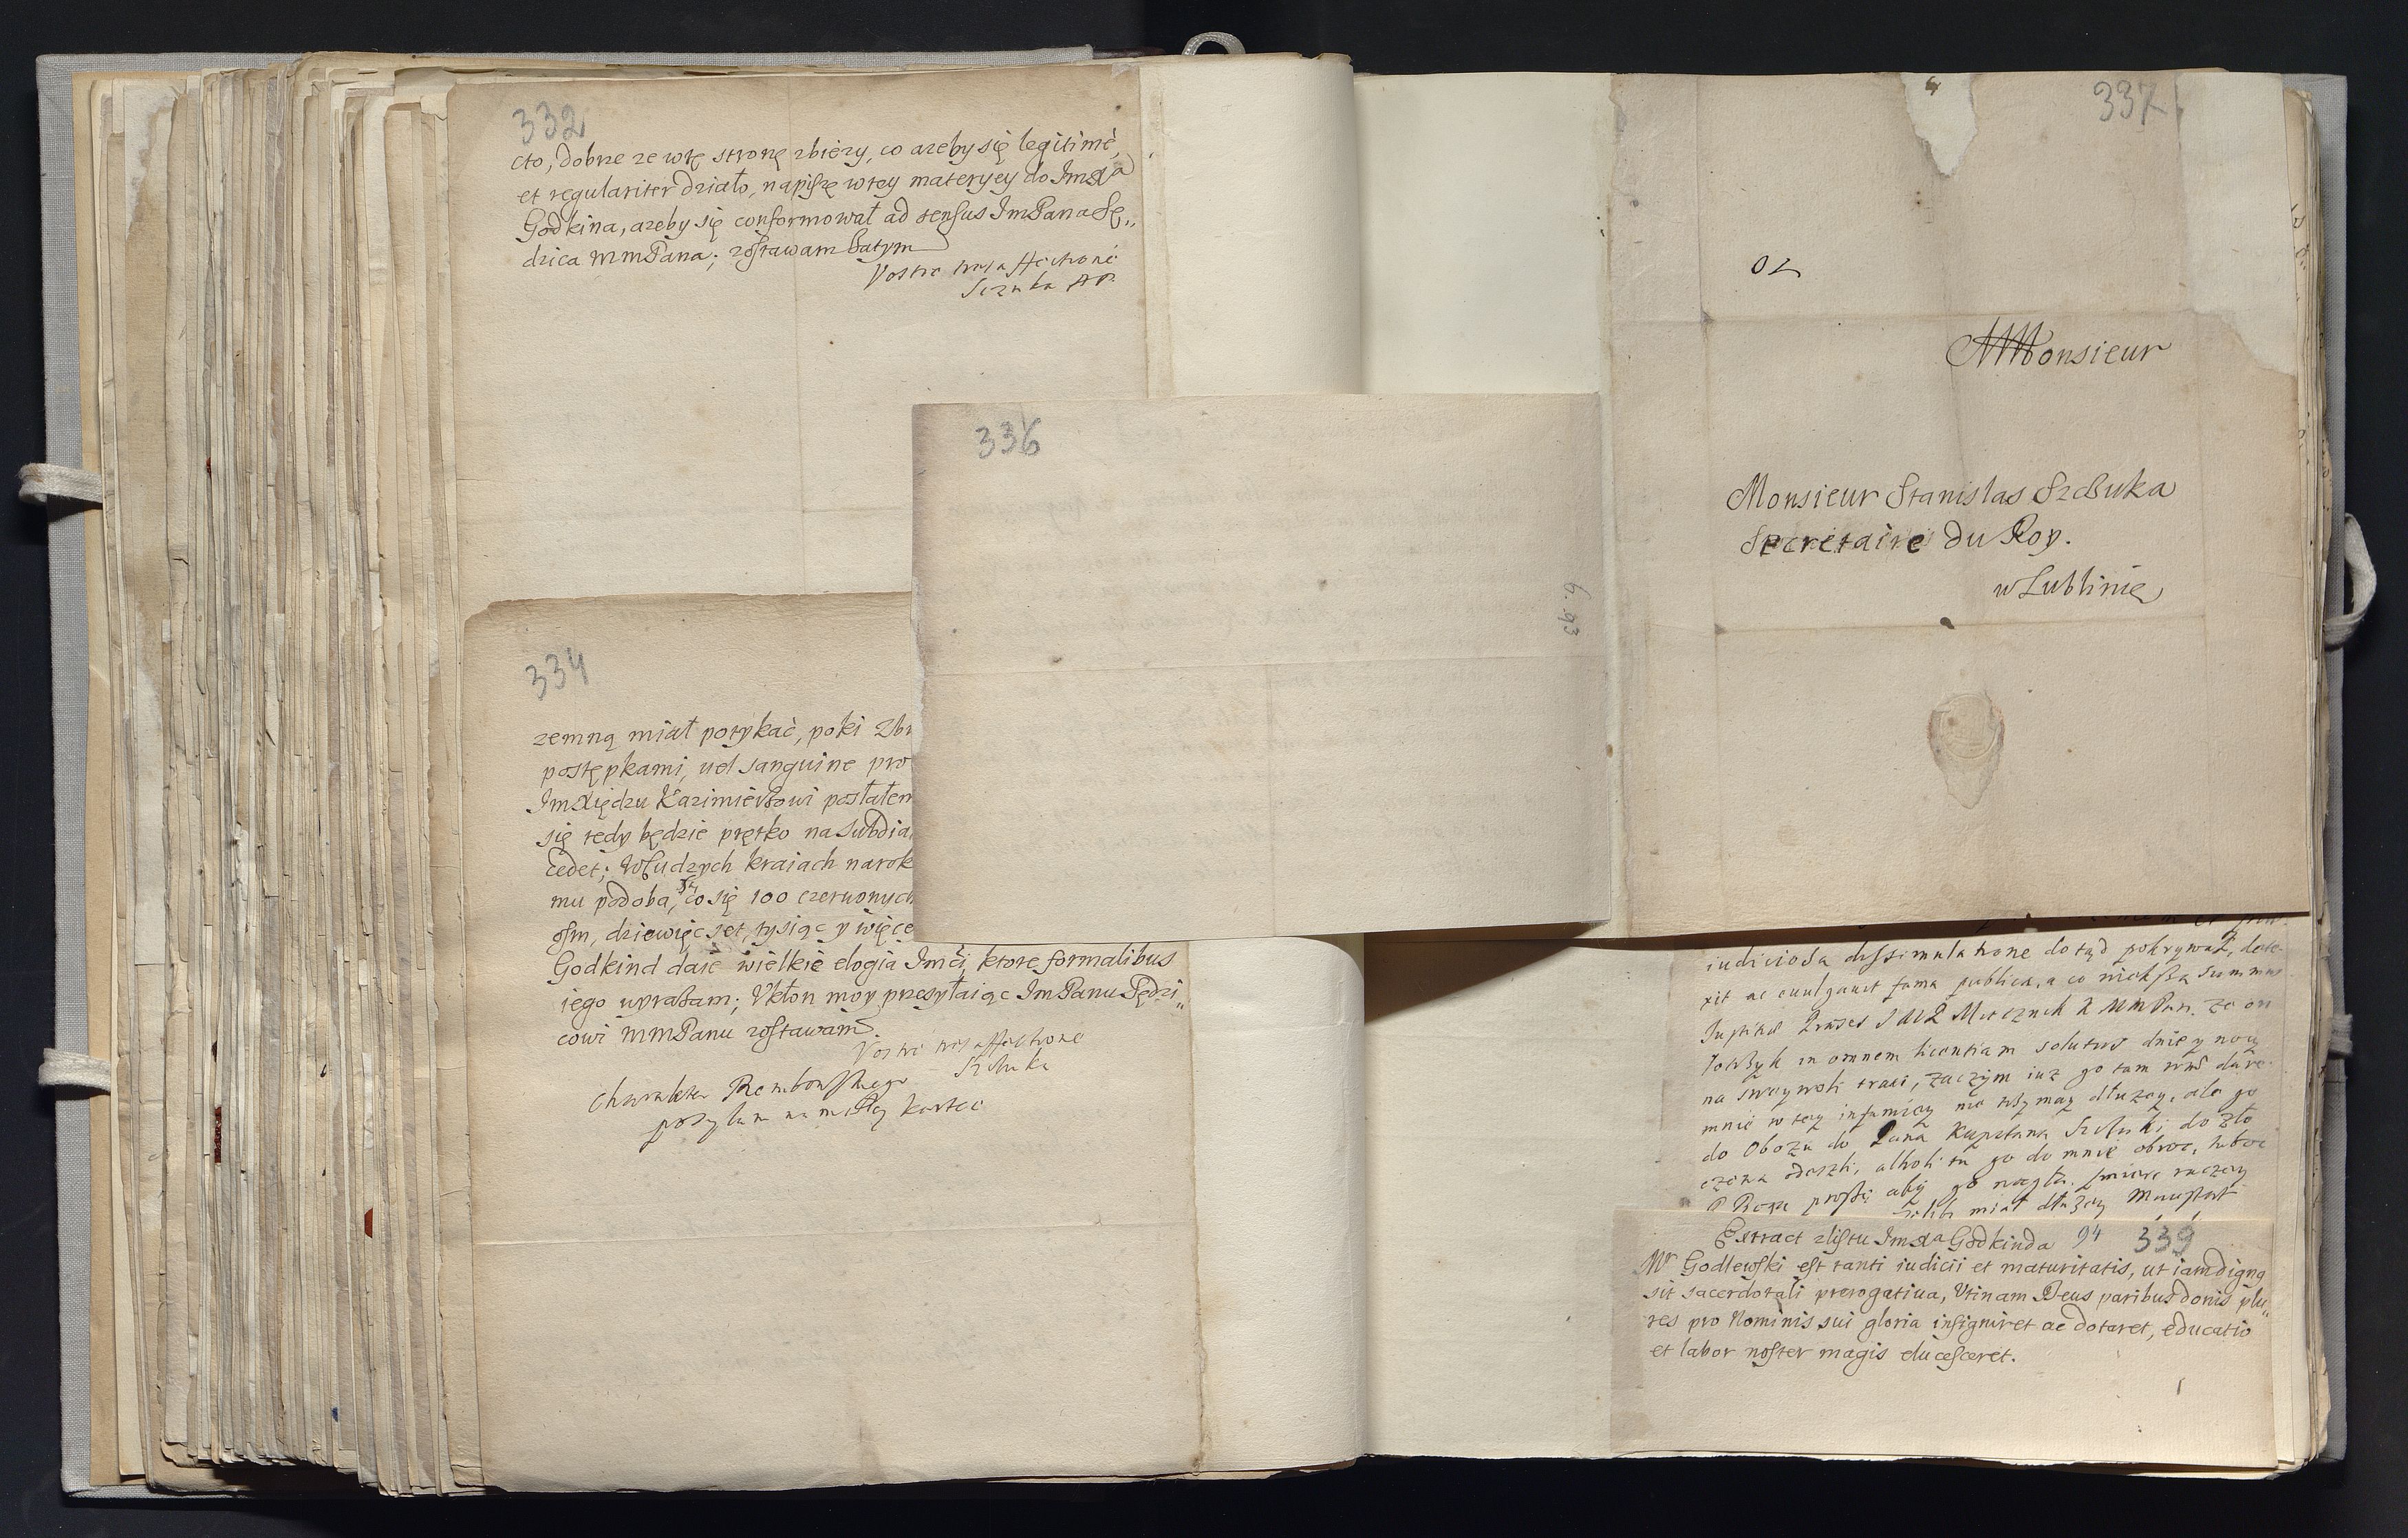 332
cto, dobrze ze wtę stronę zbiezy, co azeby się legitimè,
et regulariter działo, napiszę wtey materyey do Imxa
Godkina, azeby się conformował ad sensus ImPana Sę„
dzica MmPana; zostawam zatym
Vostre tres affectioné
Sczuka AP.
334
zemną miał potykać, poki Zbr
postępkami, uel sanguine pro
Imxiędzu Kazimierzowi posłałem
się tedy będzie prętko na Subdia
cedet; WCudzych kraiach narok
mu podoba, co się 100 czerwonych
osm, dziewięcset, tysiąc y więce
Godkind daie wielkie elogia Imći, ktore formalibus
iego wyrazam; Vkłon moy przesyłaiąc ImPanu Sędzi„
cowi MmPanu zostawam.
Vostre tres affectione
Szczuka
Charakter Rembowskiego
posyłam na małey kartce
336
6. 93
337
Monsieur
Monsieur Stanislas Szczuka
Secretaire du Roy.
w Lublinie
iudiciosa dissimulatione dotąd pokrywał, dete„
xit ac euulgauit fama publica, a co wieksza summus
ze on
in omnem licentiam solutus dnie y nocy
na swywoli trawi, zaczym iuz go tam
mnie w tey infamiey nie trzymay dłuzey, ale go
do Obozu do Pana Kapitana Szczuki do
odeszli, alboli tu go do mnie obroc,
P Boga proszę aby go nagła smierc raczey
miał dłuzey
Extract zlistu Imxa Godkinda 94 339
Mr Godlewski est tanti iudicii et maturitatis, ut iam dignq
sit sacerdotali prerogatiua, Vtinam Deus paribus donis plu„
res pro Nominis sui gloria insigniret ac dotaret, educatio
et labor noster magis elucesceret.